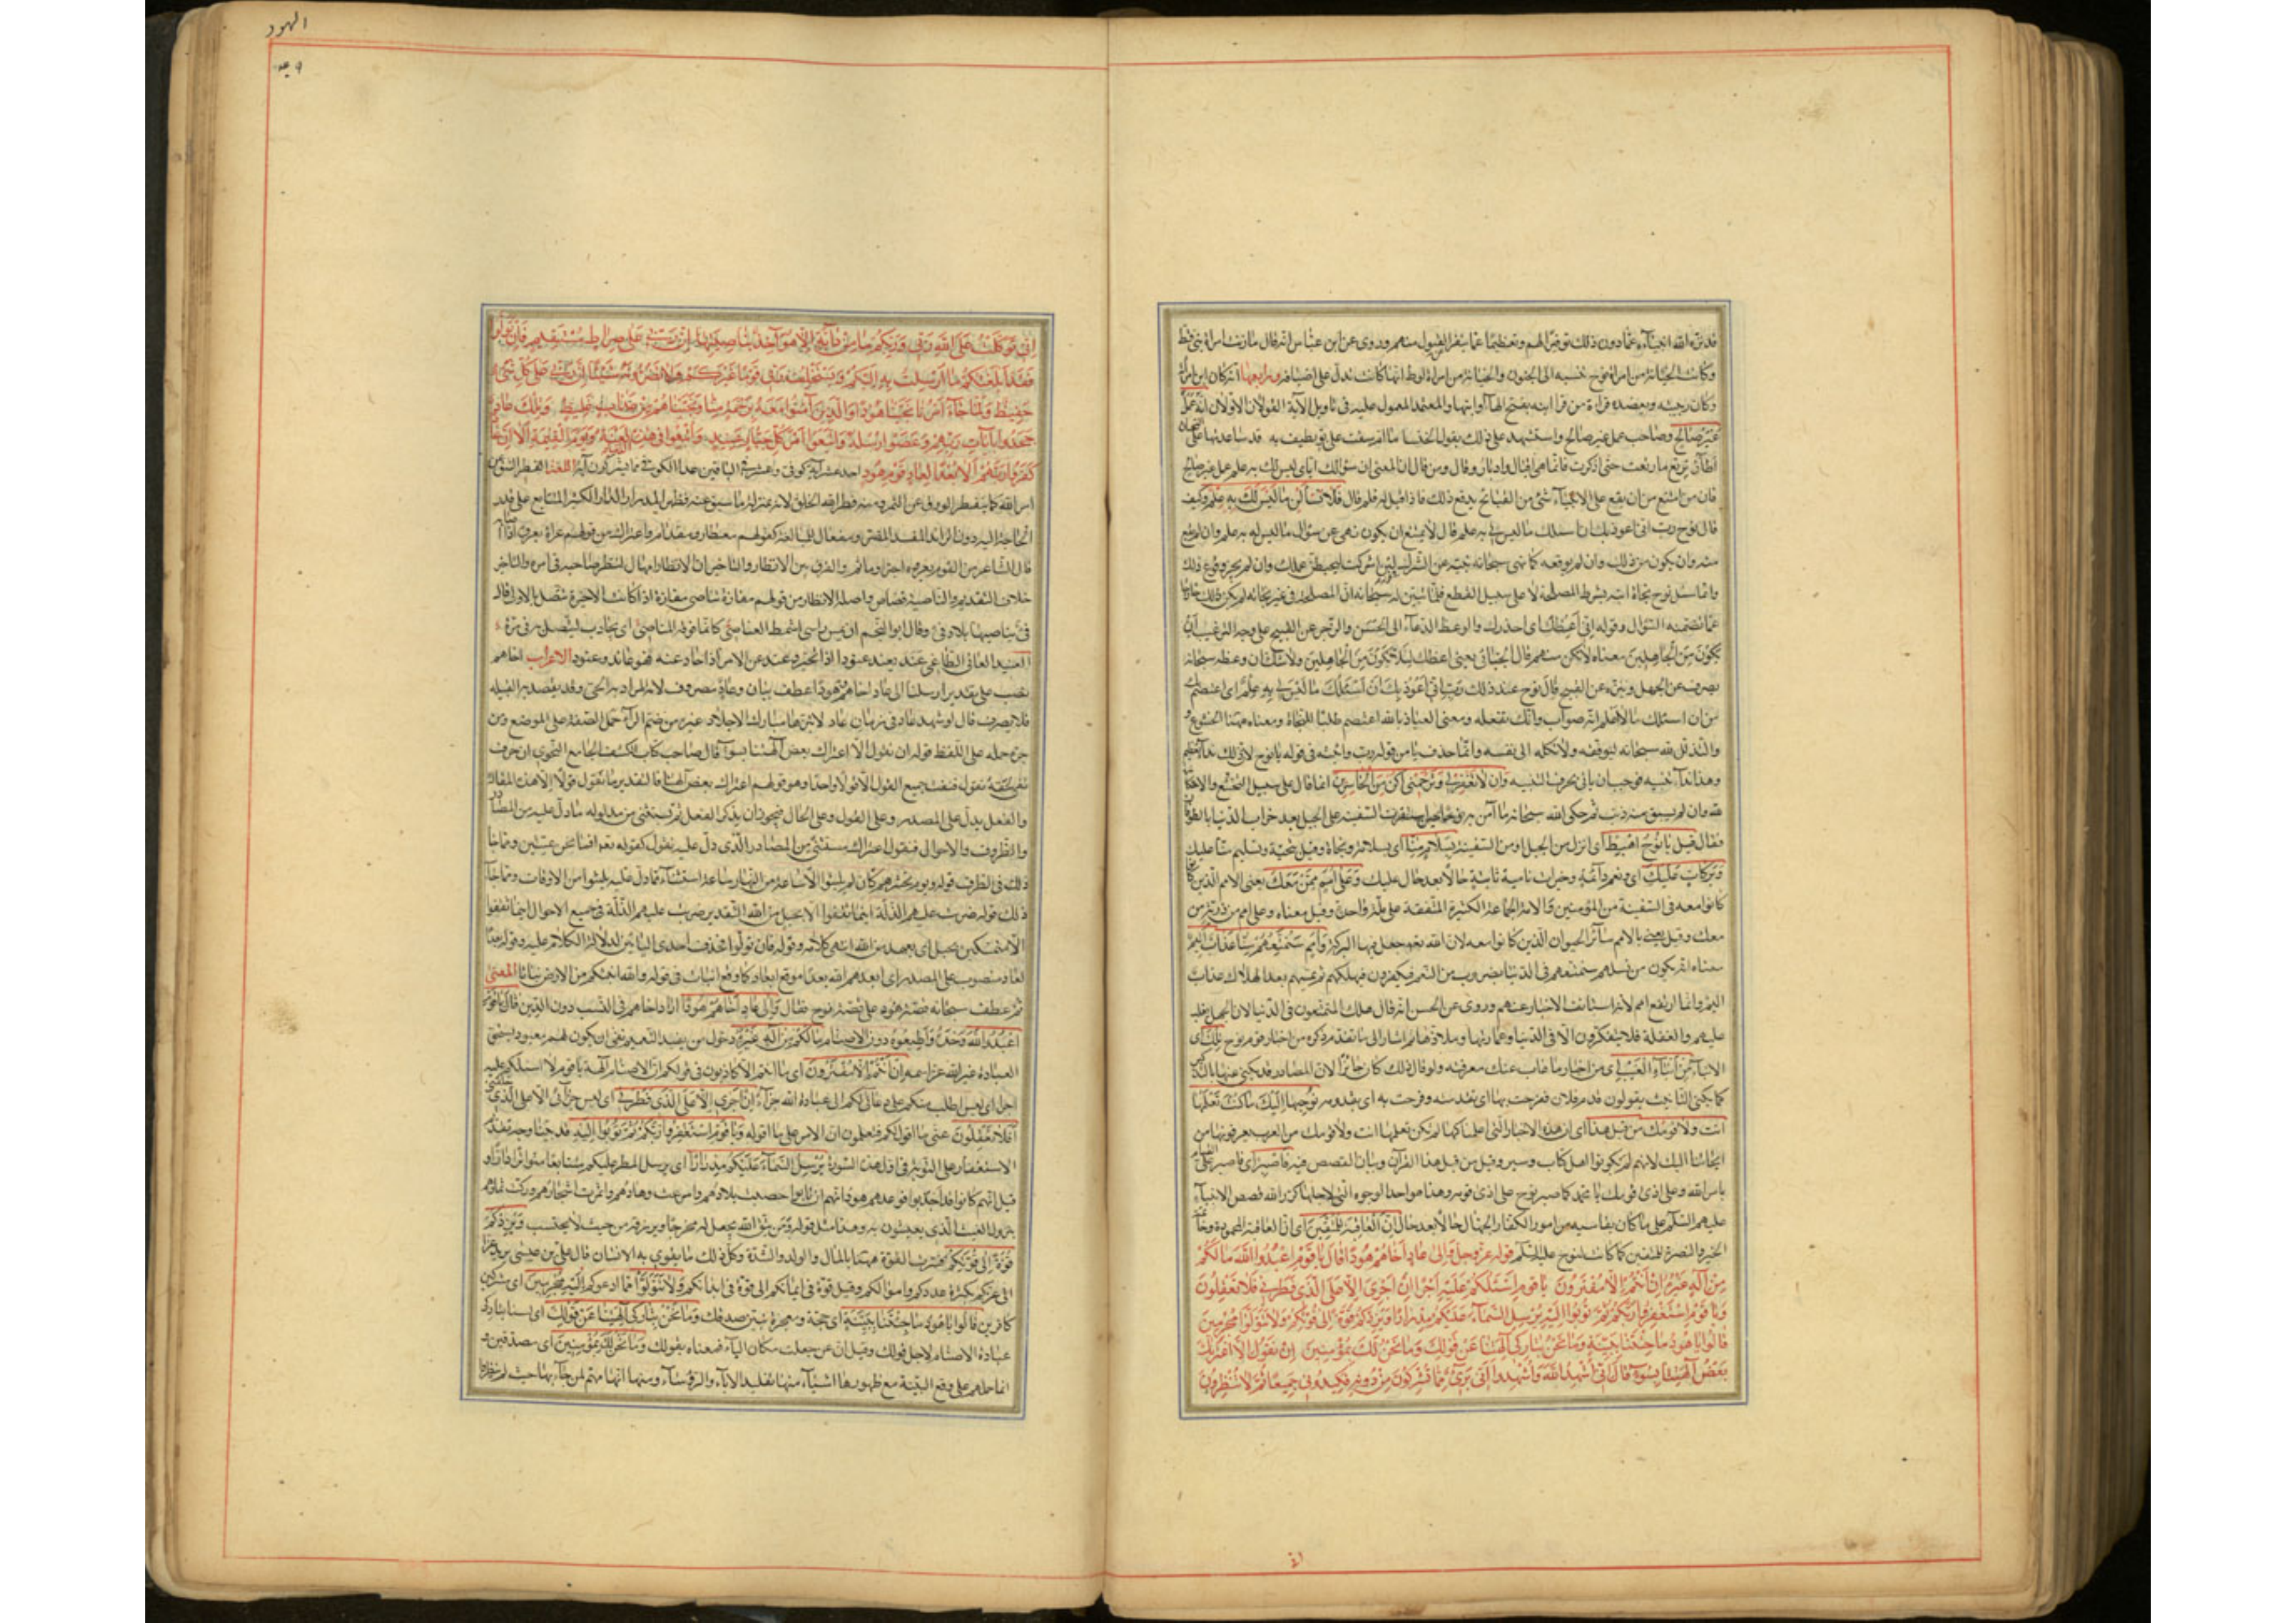 قد نزه الله انبيآءه عمّا دون ذلك توقيرًا لهم وتعظيمًا عمّا ينفر القبول منهم وروى عن ابن عبّاس انه قال ما زنت امراة نبى قط
وكانت الخيانة من امراة نوح نسبه الى الجنون والخيانة من امراة لوط انها كانت تدل على اضيافه ورابعها انه كان ابن امرأته
وكان ربيبه ويعضده قراءة من قرا ابنه بفتح الهآء او ابنها والمعتمد المعول عليه فى تاويل الآية القولان الاولان انه عمل
غير صالح وصاحب عمل غير صالح واستشهد على ذلك بقول الخنسا ما ام سقب على بو تطيف به قد ساعدتها على
ترتع ما رتعت حتى اذا ادكرت فانما هى اقبال وادبار وقال ومن قال ان المعنى ان سؤالك اياى ليس لك به علم عمل غير صالح
فان من امتنع من ان يقع على الانبيآء شئ من القبائح يدفع ذلك فاذا قيل له فلم قال فلا تسألن ما ليس لك به علم وكيف
قال نوح رب انى اعوذ بك ان اسئلك ما ليس لى به علم قال لا يمتنع ان يكون نهى عن سؤال ما ليس له به علم وان لم يقع
منه وان يكون من ذلك وان لم يوقعه كما نهى سبحانه نبيه عن الشرك لئن اشركت ليحبطن عملك وان لم يجز وقوع ذلك
وانما سئل نوح نجاة ابنه بشرط المصلحة لا على سبيل القطع فلما تبين له سبحانه ان المصلحة فى غير نجاته لم يكن ذلك خارجًا
عمّا تضمنه السؤال وقوله انى اعظك اى احذرك والوعظ الدعآء الى الحسن والزجر عن القبيح على وجه الترغيب ان
تكون من الجاهلين معناه لا تكن منهم قال الجبائى يعنى اعظك لئلا تكون من الجاهلين ولا شك ان وعظه سبحانه
يصرف عن الجهل وينزه عن القبيح قال نوح عند ذلك رب انى اعوذ بك ان اسئلك ما ليس لى به علم اى اعتصم بك
من ان اسئلك ما لا اعلم انه صواب وانك تفعله ومعنى العياذ بالله الاعتصام طلبًا للنجاة ومعناه ههنا الخشوع
والتذلل لله سبحانه ليوفقه ولا يكله الى نفسه وانما حذف يا من قوله رب واثبته فى قوله يا نوح لان ذلك ندآء تعظيم
وهذا ندآء تنبيه فوجب ان يأتى بحرف التنبيه وان لا تغفر لى وترحمنى اكن من الخاسرين انما قال على سبيل التخشع والاستكانة
لله وان لم يسبق منه ذنب ثم حكى الله سبحانه ما امر به نوحا حين استقرت السفينة على الجبل بعد خراب الدنيا بالطوفان
فقال قيل يا نوح اهبط اى انزل من الجبل او من السفينة بسلام منا اى بسلامة ونجاة وقيل بتحية وتسليم منا عليك
وبركات عليك اى ونعم دآئمة وخيرات نامية ثابتة حالًا بعد حال عليك وعلى امم ممن معك يعنى الامم الذين
كانوا معه فى السفينة من المؤمنين والامة الجماعة الكثيرة المتفقة على ملة واحدة وقيل معناه وعلى امم من ذرية من
معك وقيل يعنى بالامم سآئر الحيوان الذين كانوا معه لان الله تعم جعل فيها البركة وامم سنمتعهم ثم يمسهم منا عذاب اليم
معناه انه يكون من نسلهم امم سنمتعهم فى الدنيا بضروب من النعم فيكفرون فيهلكهم ثم يمسهم بعد الهلاك عذاب
اليم وانما ارتفع امم لانه استانف الاخبار عنهم وروى عن الحسن انه قال هلك المتمتعون فى الدنيا لان الجهل يغلب
عليهم والغفلة فلا يتفكرون الا فى الدنيا وعمارتها وملاذها ثم اشار الى ما تقدم ذكره من اخبار قوم نوح تلك اى
الانبآء من انبآء الغيب اى من اخبار ما غاب عنك معرفته ولو قال ذلك كان جائزًا لان المصادر قد يكنى عنها بالتذكير
كما يكنى بالتانيث يقولون قدم فلان ففرحت بها اى بقدمته وفرحت به اى بقدومه نوحيها اليك ما كنت تعلمها
انت ولا قومك من قبل هذا اى ان هذه الاخبار التى اعلمناكها لم تكن تعلمها انت ولا قومك من العرب يعرفونها من
ايحائنا اليك لانهم لم يكونوا اهل كتاب وسير وقيل من قبل هذا القرآن وبيان القصص فيه فاصبر اى فاصبر على القيام
بامر الله وعلى اذى قومك يا محمد كما صبر نوح على اذى قومه وهذا هو احد الوجوه التى لاجلها كرر الله قصص الانبيآء
عليهم السلام ليصبر على ما كان يقاسيه من امور الكفار الجهال حالًا بعد حال ان العاقبة للمتقين اى ان العاقبة المحمودة وخاتمة
الخير والنصرة للمتقين كما كانت لنوح عليه السلام قوله عز وجل والى عاد اخاهم هودًا قال يا قوم اعبدوا الله ما لكم
من اله غيره ان انتم الا مفترون يا قوم لا اسئلكم عليه اجرًا ان اجرى الا على الذى فطرنى افلا تعقلون
ويا قوم استغفروا ربكم ثم توبوا اليه يرسل السمآء عليكم مدرارًا ويزدكم قوة الى قوتكم ولا تتولوا مجرمين
قالوا يا هود ما جئتنا ببينة وما نحن بتاركى آلهتنا عن قولك وما نحن لك بمؤمنين ان نقول الا اعتريك
بعض آلهتنا بسوء قال انى اشهد الله واشهدوا انى برئ مما تشركون من دونه فكيدونى جميعًا ثم لا تنظرون
الهود
انى توكلت على الله ربى وربكم ما من دآبة الا هو آخذ بناصيتها ان ربى على صراط مستقيم فان تولوا
فقد ابلغتكم ما ارسلت به اليكم ويستخلف ربى قومًا غيركم ولا تضرونه شيئًا ان ربى على كل شئ
حفيظ ولما جآء امرنا نجينا هودًا والذين آمنوا معه برحمة منا ونجيناهم من عذاب غليظ وتلك عاد
جحدوا بايات ربهم وعصوا رسله واتبعوا امر كل جبار عنيد واتبعوا فى هذه الدنيا لعنة ويوم القيمة الا ان عادا
كفروا ربهم الا بعدًا لعاد قوم هود احد عشر آية كوفى وعشر فى الباقين عدّ الكوفى مما تشركون آية اللغة الفطر الشق عن
امر الله كما ينفطر الورق عن الشجر ومنه فطر الله الخلق لانه بمنزلة ما شق عنه فظهر المدرار الدار الكثير المتتابع على قدر
الحاجة اليه دون الزائد المفسد المضر ومفعال للمبالغة كقولهم معطار ومقدام واعتراك من قولهم عراه يعروه اذا اصابه
قال الشاعر من القوم يعروه اجترام وماثم والفرق بين الانتظار والتاخير ان الانتظار امهال لينظر صاحبه فى امره والتاخير
خلاف التقديم والناصية قصاص واصله الاتصال من قولهم مفازة تناصى مفازة اذا كانت الاخيرة متصل بالاولى قال
قى تناصيها بلاد قى وقال ابو النجم ان يمس راسى اشمط العناصى كانما فرقه المناصى اى يجاذب ليتصل به فى مرة
العنيد العاتى الطاغى عند يعند عنودا اذا تجبر وعند عن الامر اذا حاد عنه فهو عاند وعنود الاعراب اخاهم
نصب على تقدير ارسلنا الى عاد اخاهم هودًا عطف بيان وعاد مصروف لان المراد به الحى وقد يقصد به القبيلة
فلا يصرف قال لو شهد عاد فى زمان عاد لابتزها مبارك الاجلاد غيره من ضم الرآء حمل الصفة على الموضع ومن
جره حمله على اللفظ قوله ان نقول الا اعتراك بعض آلهتنا بسوء قال صاحب كتاب الكشف الجامع النحوى ان حرف
نفى نقول فنفت جميع القول الا قولًا واحدًا وهو قولهم اعتراك بعض آلهتنا فالتقدير ما نقول قولًا الا هذه المقالة
والفعل يدل على المصدر وعلى القول وعلى الحال فيجوز ان يذكر الفعل ثم يستثنى من مدلوله ما دل عليه من المصادر
والظروف والاحوال فنقول اعتراك مستثنى من المصادر الذى دل عليه نقول كقوله تعم افما نحن بميتين ومما جآء
ذلك فى الظرف قوله ويوم نحشرهم كان لم يلبثوا الا ساعة من النهار ساعة استثنآء مما دل عليه يلبثوا من الاوقات ومما جآء
ذلك قوله ضربت عليهم الذلة اينما ثقفوا الا بحبل من الله التقدير ضربت عليهم الذلة فى جميع الاحوال اينما ثقفوا
الا متمسكين بحبل اى بعهد من الله انتهى كلامه وقوله فان تولوا بحذف احدى التائين لدلالة الكلام عليه وقوله بعدًا
لعاد منصوب على المصدر اى ابعدهم الله بعدًا موقع ابعاد كما وقع انبات فى قوله والله انبتكم من الارض نباتا المعنى
ثم عطف سبحانه قصة هود على قصة نوح فقال والى عاد اخاهم هودًا اراد اخاهم فى النسب دون الدين قال يا قوم
اعبدوا الله وحده واطيعوه دون الاصنام ما لكم من اله غيره دخول من يفيد التعميم نفى ان يكون لهم معبود يستحق
العبادة غير الله عز اسمه ان انتم الا مفترون اى ما انتم الا كاذبون فى قولكم ان الاصنام آلهة يا قوم لا اسئلكم عليه
اجرًا اى ليس اطلب منكم على دعائى لكم الى عبادة الله جزآء ان اجرى الا على الذى فطرنى اى ليس جزآئى الا على الذى خلقنى
افلا تعقلون عنى ما اقول لكم فتعلمون ان الامر على ما اقوله ويا قوم استغفروا ربكم ثم توبوا اليه قد بينا وجه تقديم
الاستغفار على التوبة فى اول هذه السورة يرسل السمآء عليكم مدرارًا اى يرسل المطر عليكم متتابعًا متواترًا دارًا و
قيل انهم كانوا قد اجدبوا فوعدهم هود انهم ان تابوا اخصبت بلادهم وامرعت وهادهم واثمرت اشجارهم وزكت ثمارهم
بنزول الغيث الذى يعيشون به وهذا مثل قوله ومن يتق الله يجعل له مخرجًا ويرزقه من حيث لا يحتسب ويزدكم
قوة الى قوتكم فسرت القوة ههنا بالمال والولد والشدة وكل ذلك مما يقوى به الانسان قال على بن عيسى يريد عزا
الى عزكم بكثرة عددكم واموالكم وقيل قوة فى ايمانكم الى قوة فى ابدانكم ولا تتولوا عمّا ادعوكم اليه مجرمين اى مشركين
كافرين قالوا يا هود ما جئتنا ببينة اى حجة ومعجزة تبين صدقك وما نحن بتاركى آلهتنا عن قولك اى لسنا بتاركى
عبادة الاصنام لاجل قولك وقيل ان عن جعلت مكان البآء فمعناه بقولك وما نحن لك بمؤمنين اى مصدقين و
انما حملهم على دفع البينة مع ظهورها اشيآء منها تقليد الابآء والرؤسآء ومنها اتهامهم لمن جآء بها حيث لم ينظروا